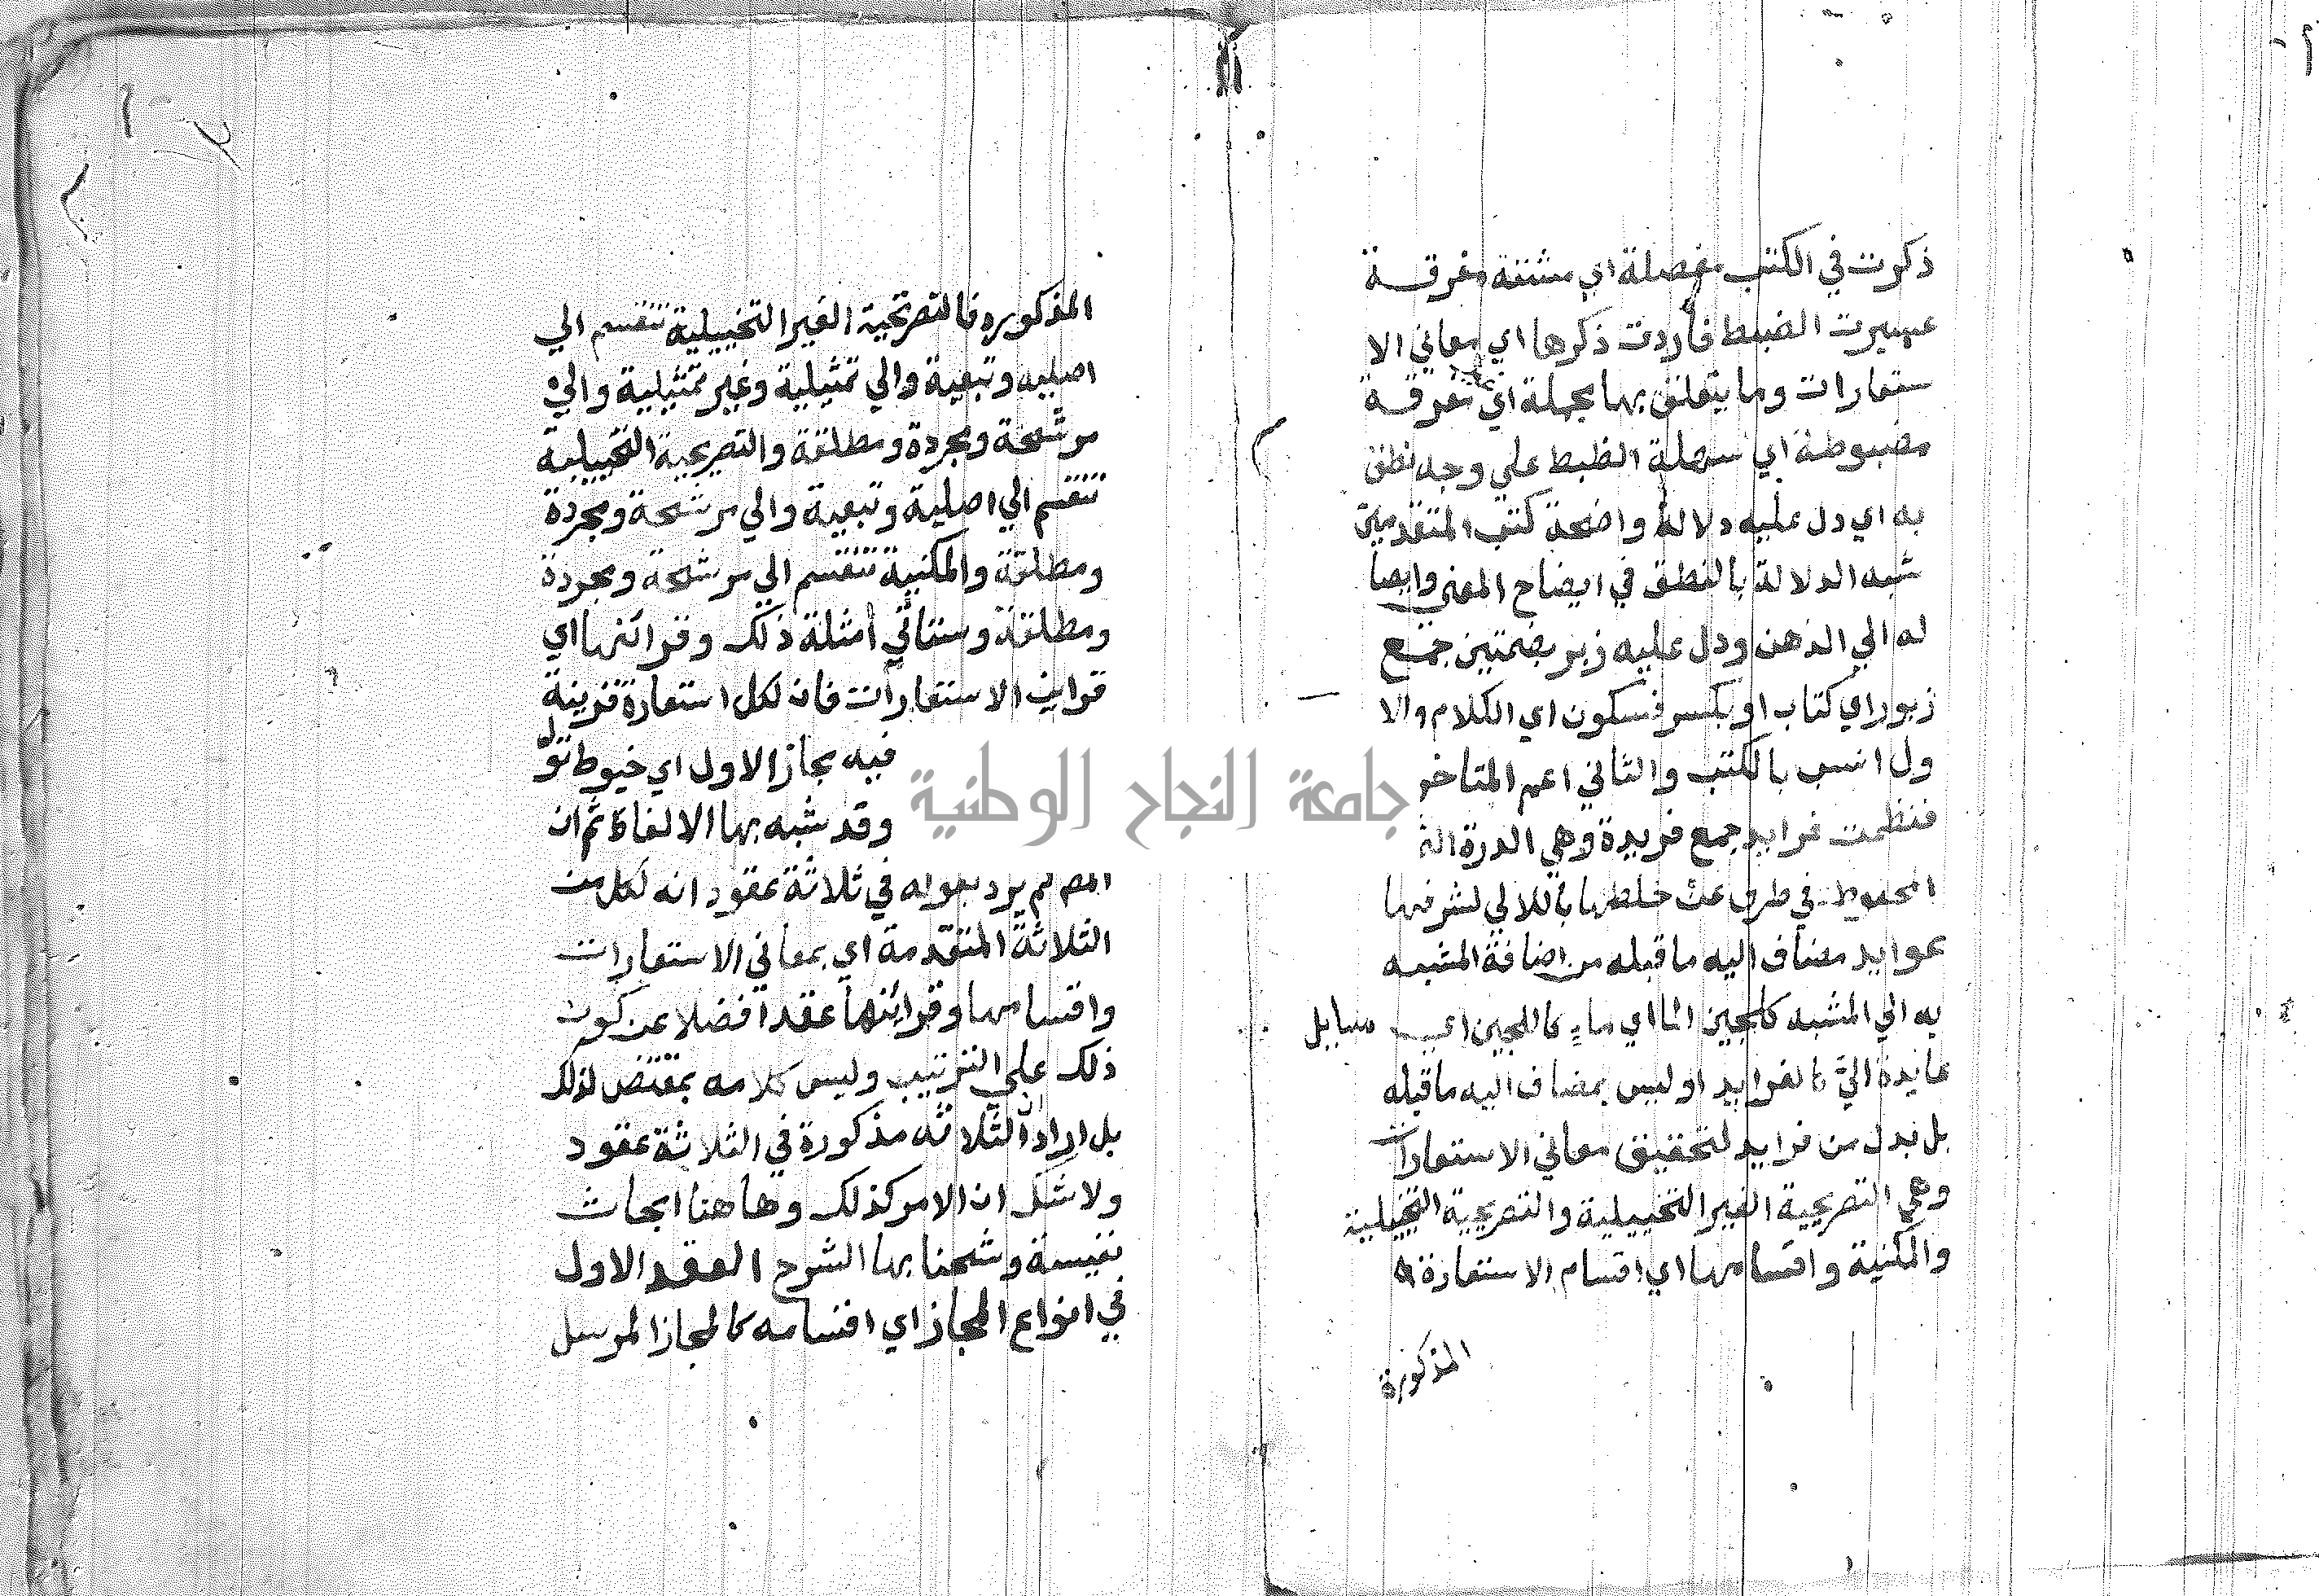 ذكرت في الكتب مفصلة اي مشتتة مفرقة
عسيرت الضبط فأردت ذكرها اي معاني الا
ستعارات وما يتعلق بها مجملة اي
مضبوطة اي سهلة الظبط علي وجه نطق
به اي دل عليه دلالة واضحة كتب المتقدمين
شبه الدلالة بالنطق في ايضاح المعني وايصا
له الي الذهن ودل عليه زبر بضمتين جمع
زبور اي كتاب او بكسر فسكون اي الكلام والا
ول انسب بالكتب والثاني اعم المتاخر
فنظمت فرايد جمع فريدة وهي الدرة
المحفوظ في ظرف عن خلطها بأللالي لشرفها
عوايد مضاف اليه ما قبله من اضافة المشبه
به الي المشبه كلجين الما اي ماءٍ كاللجين اي مسايل
عايدة اليّ كالفرايد او ليس بمضاف اليه ما قبله
بل بدل من فرايد لتحقيق معاني الاستعارات
وهي التصريحية الغير التخييلية والتصريحية التخييلية
والمكنية واقسامها اي اقسام الاستعارة
المذكورة
المذكوره فالتصريحية الغير التخييلية تنقسم الي
اصليه وتبعية والي تمثيلية وغير تمثيلية والي
مرشحة ومجردة ومطلقة والتصريحية التخييلية
تنقسم الي اصلية وتبعية والي مرشحة ومجردة
ومطلقة والمكنية تنقسم الي مرشحة ومجردة
ومطلقة وستأتي أمثلة ذلك وقرائنها اي
قراين الاستعارات فان لكل استعارة قرينة
فيه مجاز الاول اي خيوط تؤل
جامعة النجاح الوطنية
وقد شبه بها الالفاظ ثم ان
المص لم يرد بقوله في ثلاثة عقود انه لكل من
الثلاثة المتقدمة اي بمعاني الاستعارات
واقسامها وقرائنها عقدا فضلا عن كون
ذلك علي الترتيب وليس كلامه بمقتض لذلك
بل اراد ان الثلاثه مذكورة في الثلاثة عقود
ولا شك ان الامر كذلك وها هنا ابحاث
نفيسة وشحنا بها الشرح العقد الاول
في انواع المجاز اي اقسامه كالمجاز المرسل